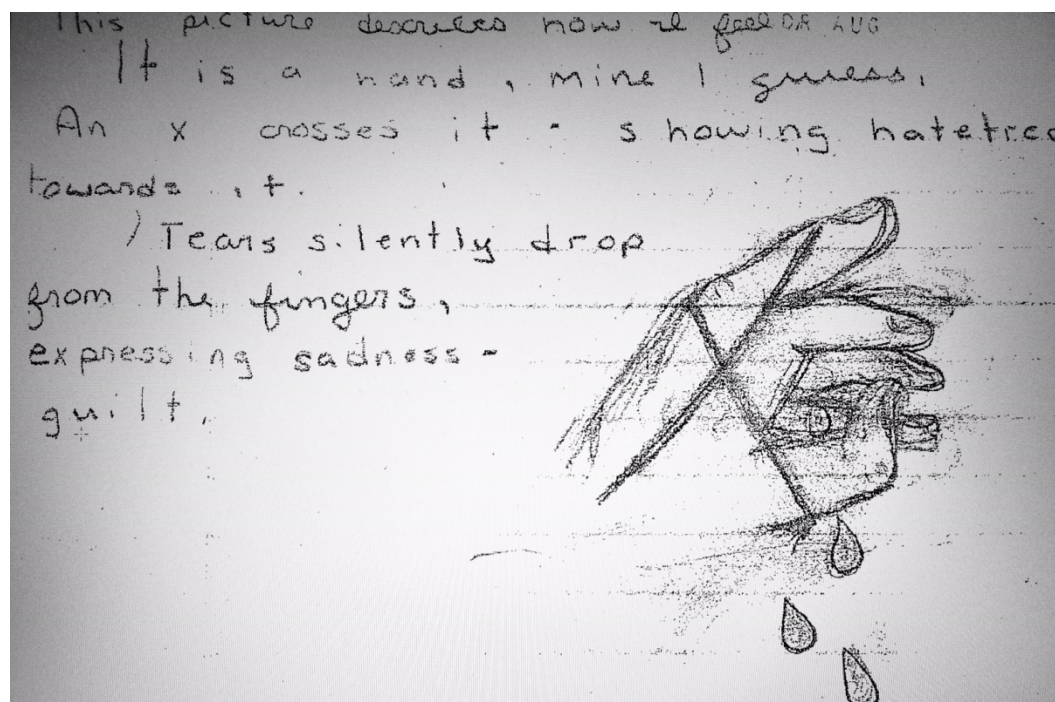 This picture describes how I feel
It is a hand, mine I guess.
An x crosses it - showing hatetred
towards it.
Tears silently drop
from the fingers,
expressing sadness -
guilt.